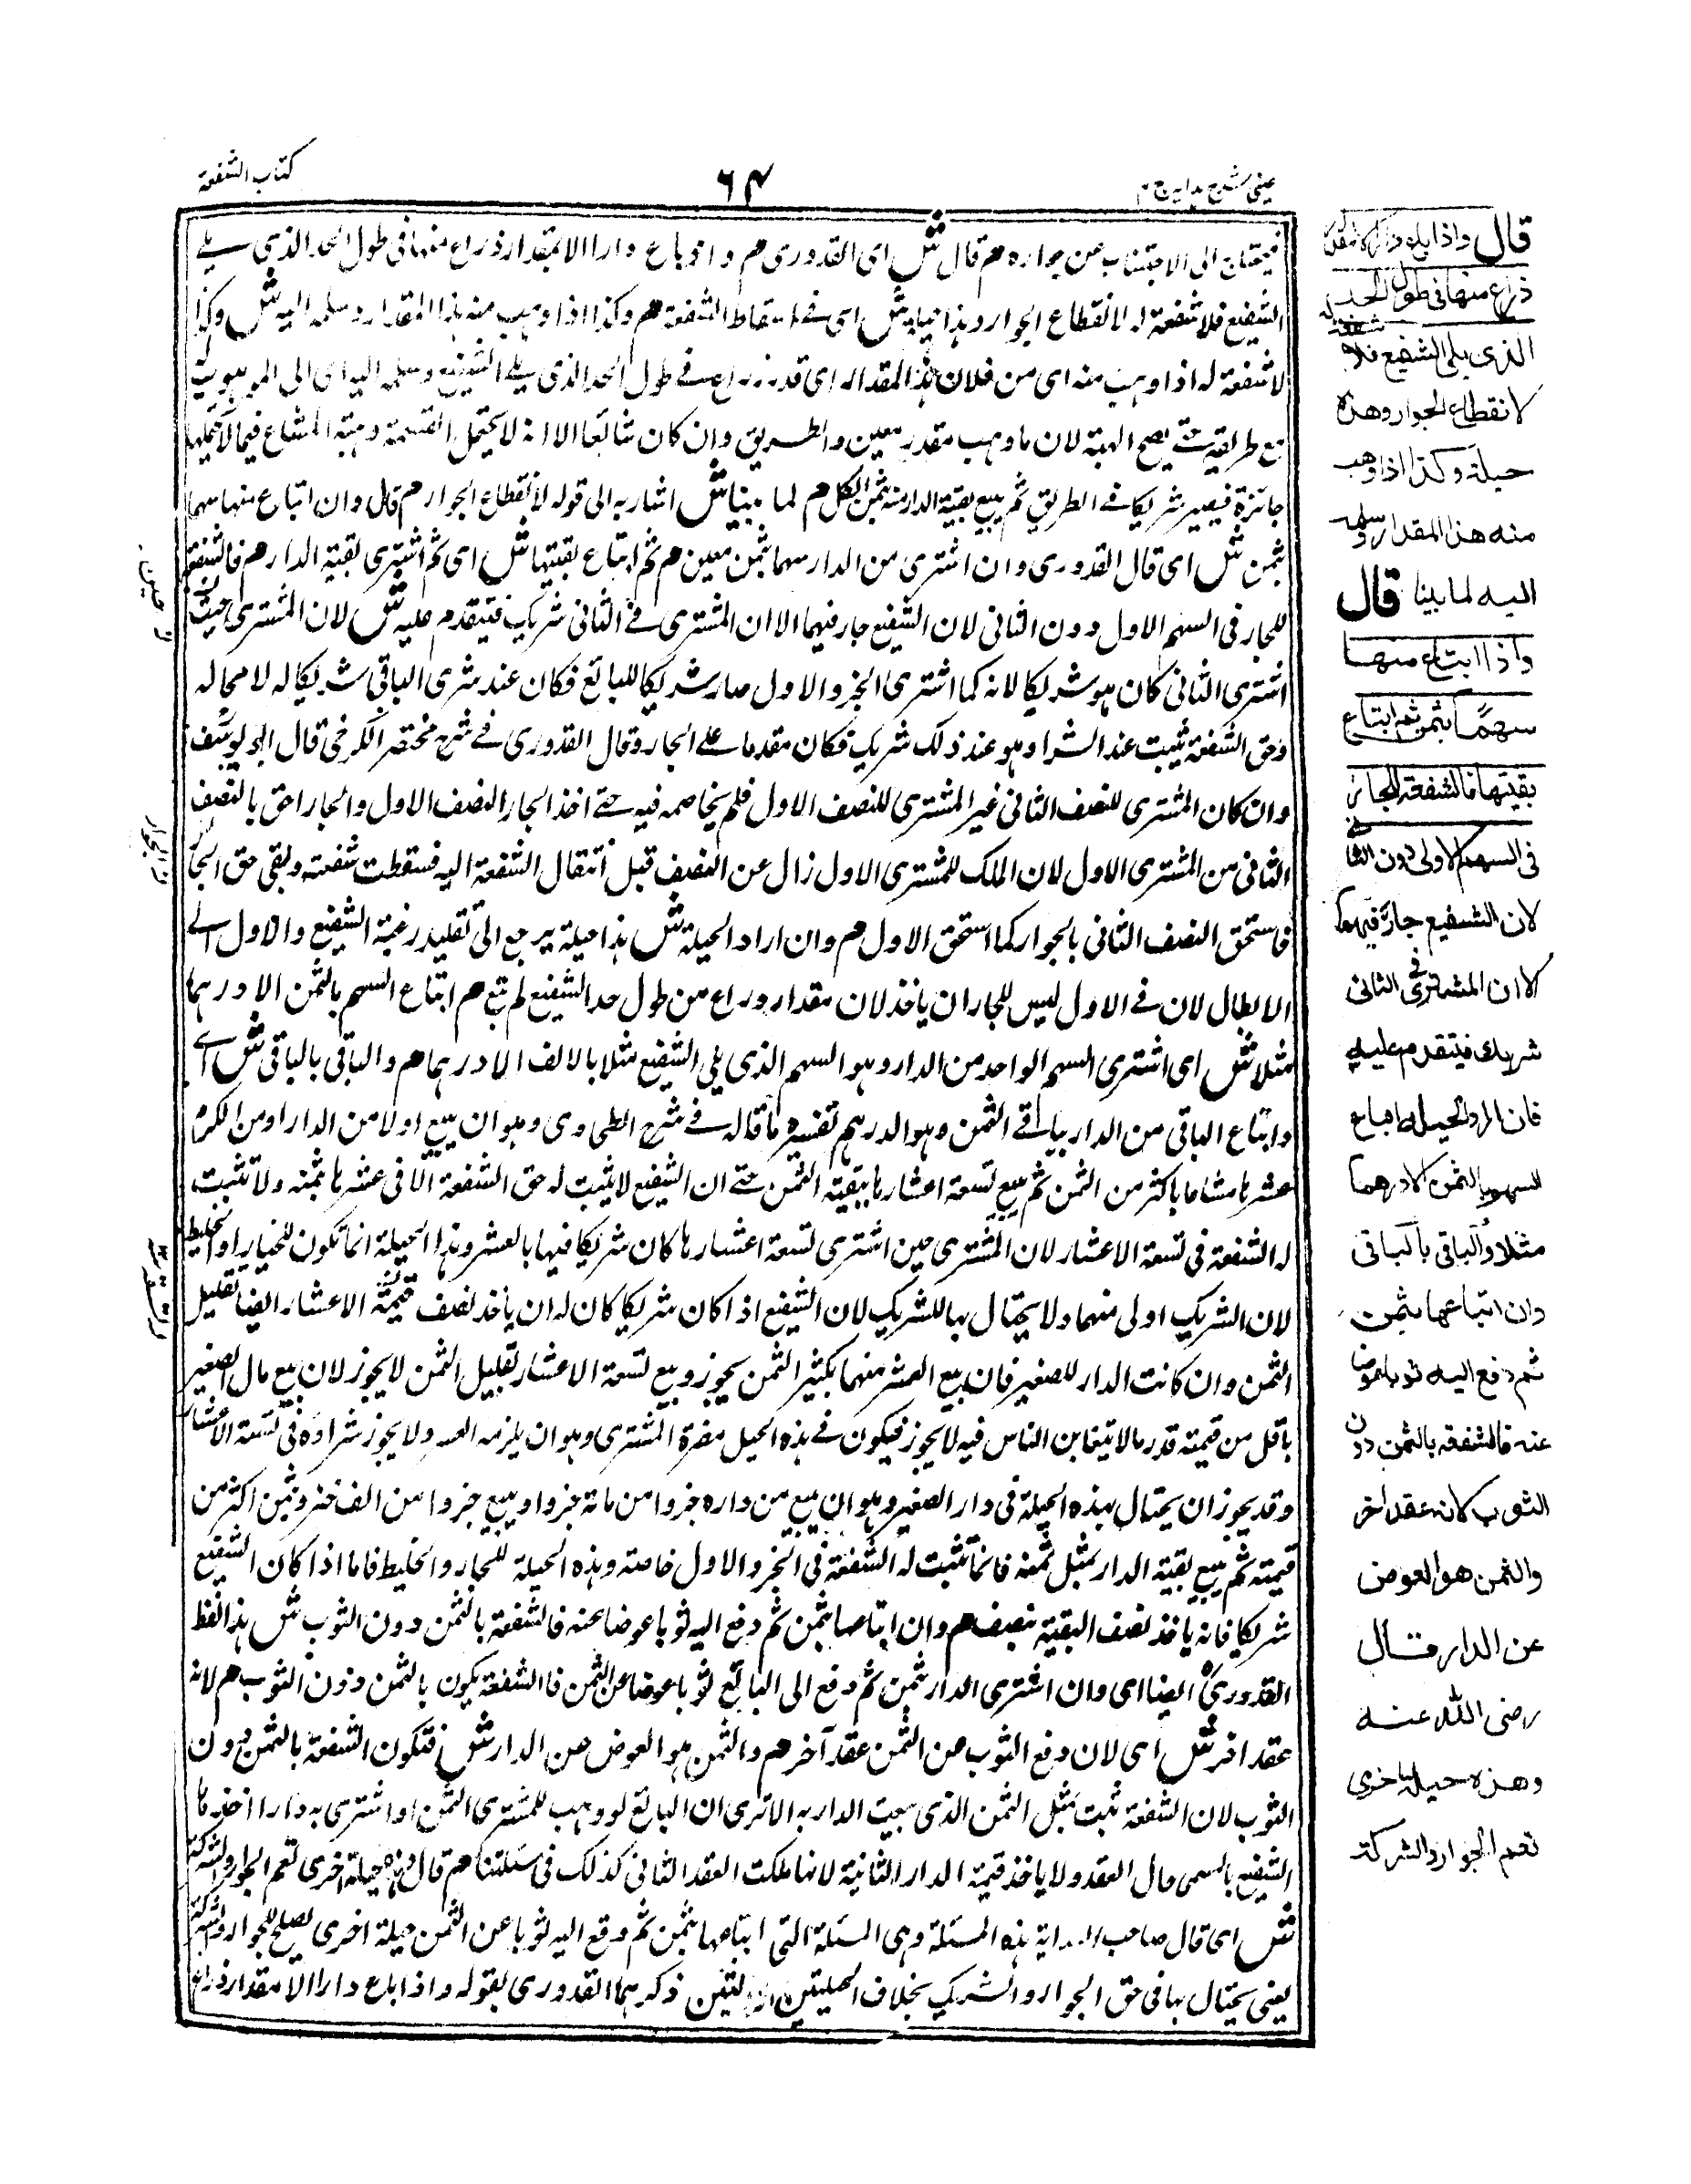 كتاب الشفعة
٦٤
عينى شرح هدايه ج ٣
فيحتاج الى الاجتناب عن جواره هم قال ش اى القدورى هم واذا باع دارا الا بمقدار ذراع منها فى طول الحد الذى يلے
الشفيع فلا شفعة له لانقطاع الجوار وهذا حيلة ش اى فے اسقاط الشفعة هم وكذا اذا وهب منه هذا المقدار وسلمه اليه ش وكذا
لا شفعة له اذا وهب منه اى من فلان هذا المقدار اى قدر ذراع فے طول الحد الذى يلے الشفيع وسلمه اليه اى الى الموهوب له
مع طريقه حتے يصح الهبة لان ما وهب مقدر معين والطريق وان كان شائعا الا انه لا يحتمل القسمة وهبة المشاع فيما لا يحتملها
جائزة فيصير شريكا فے الطريق ثم يبيع بقية الدار منه بثمن الكل هم لما بينا ش اشار به الى قوله لانقطاع الجوار هم قال وان ابتاع منها سهما
بثمن ش اى قال القدورى وان اشترى من الدار سهما بثمن معين هم ثم ابتاع بقيتها ش اى ثم اشترى بقية الدار هم فالشفعة
للجار فى السهم الاول دون الثانى لان الشفيع جار فيهما الا ان المشترى فے الثانى شريك فيتقدم عليه ش لان المشترى حيث
اشترى الثانى كان هو شريكا لانه كما اشترى الجزو الاول صار شريكا للبائع فكان عند شرى الباقى شريكا له لا محاله
وحق الشفعة يثبت عند الشرا وهو عند ذلك شريك فكان مقدما علے الجار وقال القدورى فے شرح مختصر الكرخى قال ابو يوسف
وان كان المشترى للنصف الثانى غير المشترى للنصف الاول فلم يخاصمه فيه حتے اخذ الجار النصف الاول والجار احق بالنصف
الثانى من المشترى الاول لان الملك للمشترى الاول زال عن النصف قبل انتقال الشفعة اليه فسقطت شفعته وبقى حق الجار
فاستحق النصف الثانى بالجوار كما استحق الاول هم وان اراد الحيلة ش هذا حيلة يرجع الى تقليد رغبة الشفيع والاول الے
الابطال لان فے الاول ليس للجار ان ياخذ لان مقدار ذراع من طول حد الشفيع لم يبع هم ابتاع السهم بالثمن الا درهما
مثلا ش اى اشترى السهم الواحد من الدار وهو السهم الذى يلى الشفيع مثلا بالالف الا درهما هم والباقى بالباقى ش اے
وابتاع الباقى من الدار بباقے الثمن وهو الدرهم تفسيره ما قاله فے شرح الطحاوى وهو ان يبيع اولا من الدار او من الكرم
عشرها مشاعا باكثر من الثمن ثم يبيع تسعة اعشارها ببقية الثمن حتے ان الشفيع لا يثبت له حق الشفعة الا فى عشرها بثمنه ولا تثبت
له الشفعة فى تسعة الاعشار لان المشترى حين اشترى تسعة اعشارها كان شريكا فيها بالعشر وهذا الحيلة انما تكون للجار او الخليط
لان الشريك اولى منهما ولا يحتال بها للشريك لان الشفيع اذا كان شريكا كان له ان ياخذ نصف قيمة الاعشار ايضا تقليل
الثمن وان كانت الدار للصغير فان بيع العشر منهما بكثير الثمن يجوز وبيع تسعة الاعشار بقليل الثمن لا يجوز لان بيع مال الصغير
باقل من قيمته قدر ما لا يتغابن الناس فيه لا يجوز فيكون فے هذه الحيل مضرة المشترى وهو ان يلزمه العشر ولا يجوز شراؤه فى تسعة الاعشار
وقد يجوز ان يحتال بهذه الحيلة فى دار الصغير وهو ان يبيع من داره جزوا من مائة جزوا ويبيع جزوا من الف جزو بثمن اكثر من
قيمته ثم يبيع بقية الدار بمثل ثمنه فانما تثبت له الشفعة فى الجزو الاول خاصة وهذه الحيلة للجار والخليط فاما اذا كان الشفيع
شريكا فانه ياخذ نصف البقية بنصف هم وان ابتاعها بثمن ثم دفع اليه ثوبا عوضا عنه فالشفعة بالثمن دون الثوب ش هذا لفظ
القدورىؒ ايضا اى وان اشترى الدار بثمن ثم دفع الى البائع ثوبا عوضا عن الثمن فالشفعة يكون بالثمن دون الثوب هم لانه
عقد اخر ش اى لان دفع الثوب عن الثمن عقد آخر هم والثمن هو العوض عن الدار ش فتكون الشفعة بالثمن دون
الثوب لان الشفعة ثبت بمثل الثمن الذى بيعت الدار به الا ترى ان البائع لو وهب للمشترى الثمن او اشترى به دارا اخذها
الشفيع بالمسمى حال العقد ولا ياخذ قيمة الدار الثانية لانها ملكت العقد الثانى كذلك فى مسئلتنا هم قال وهذه حيلة اخرى تعم الجوار والشركة
ش اى قال صاحب الهداية هذه المسئلة وهى المسئلة التى ابتاعها بثمن ثم دفع اليه ثوبا عن الثمن حيلة اخرى يصلح للجوار والشركة
يعنى يحتال بها فى حق الجوار والشريك بخلاف الحيلتين اللتين ذكرهما القدورى بقوله واذا باع دارا الا مقدار ذراع
قال واذا باع دارا الا مقدار
ذراع منها فى طول الحد
الذى يلى الشفيع فلا شفعة له
لانقطاع الجوار وهذه
حيلة وكذا اذا وهب
منه هذا المقدار وسلمه
اليه لما بينا قال
واذا ابتاع منها
سهمًا بثمن ثم ابتاع
بقيتها فالشفعة للجار
فى السهم الاول دون الثانى
لان الشفيع جار فيهما
الا ان المشترى فى الثانى
شريك فيتقدم عليه
فان اراد الحيلة ابتاع
السهم بالثمن الا درهما
مثلا والباقى بالباقى
وان ابتاعها بثمن
ثم دفع اليه ثوبا عوضا
عنه فالشفعة بالثمن دون
الثوب لانه عقد اخر
والثمن هو العوض
عن الدار قال
رضى الله عنه
وهذه حيلة اخرى
تعم الجوار والشركة